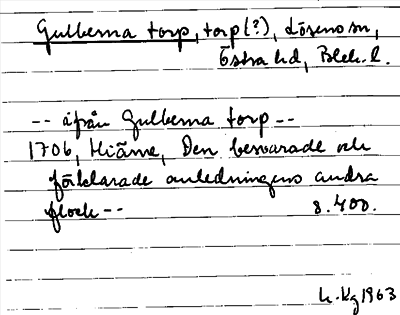 Gulberna torp, torp(?), Lösens sn,
Östra hd, Blek. l.
-- ifrån Gulberna torp --
1706, Hiärne, Den besvarade och
förklarade anledningens andra
flock -- 8.400.
h. Kg 1963